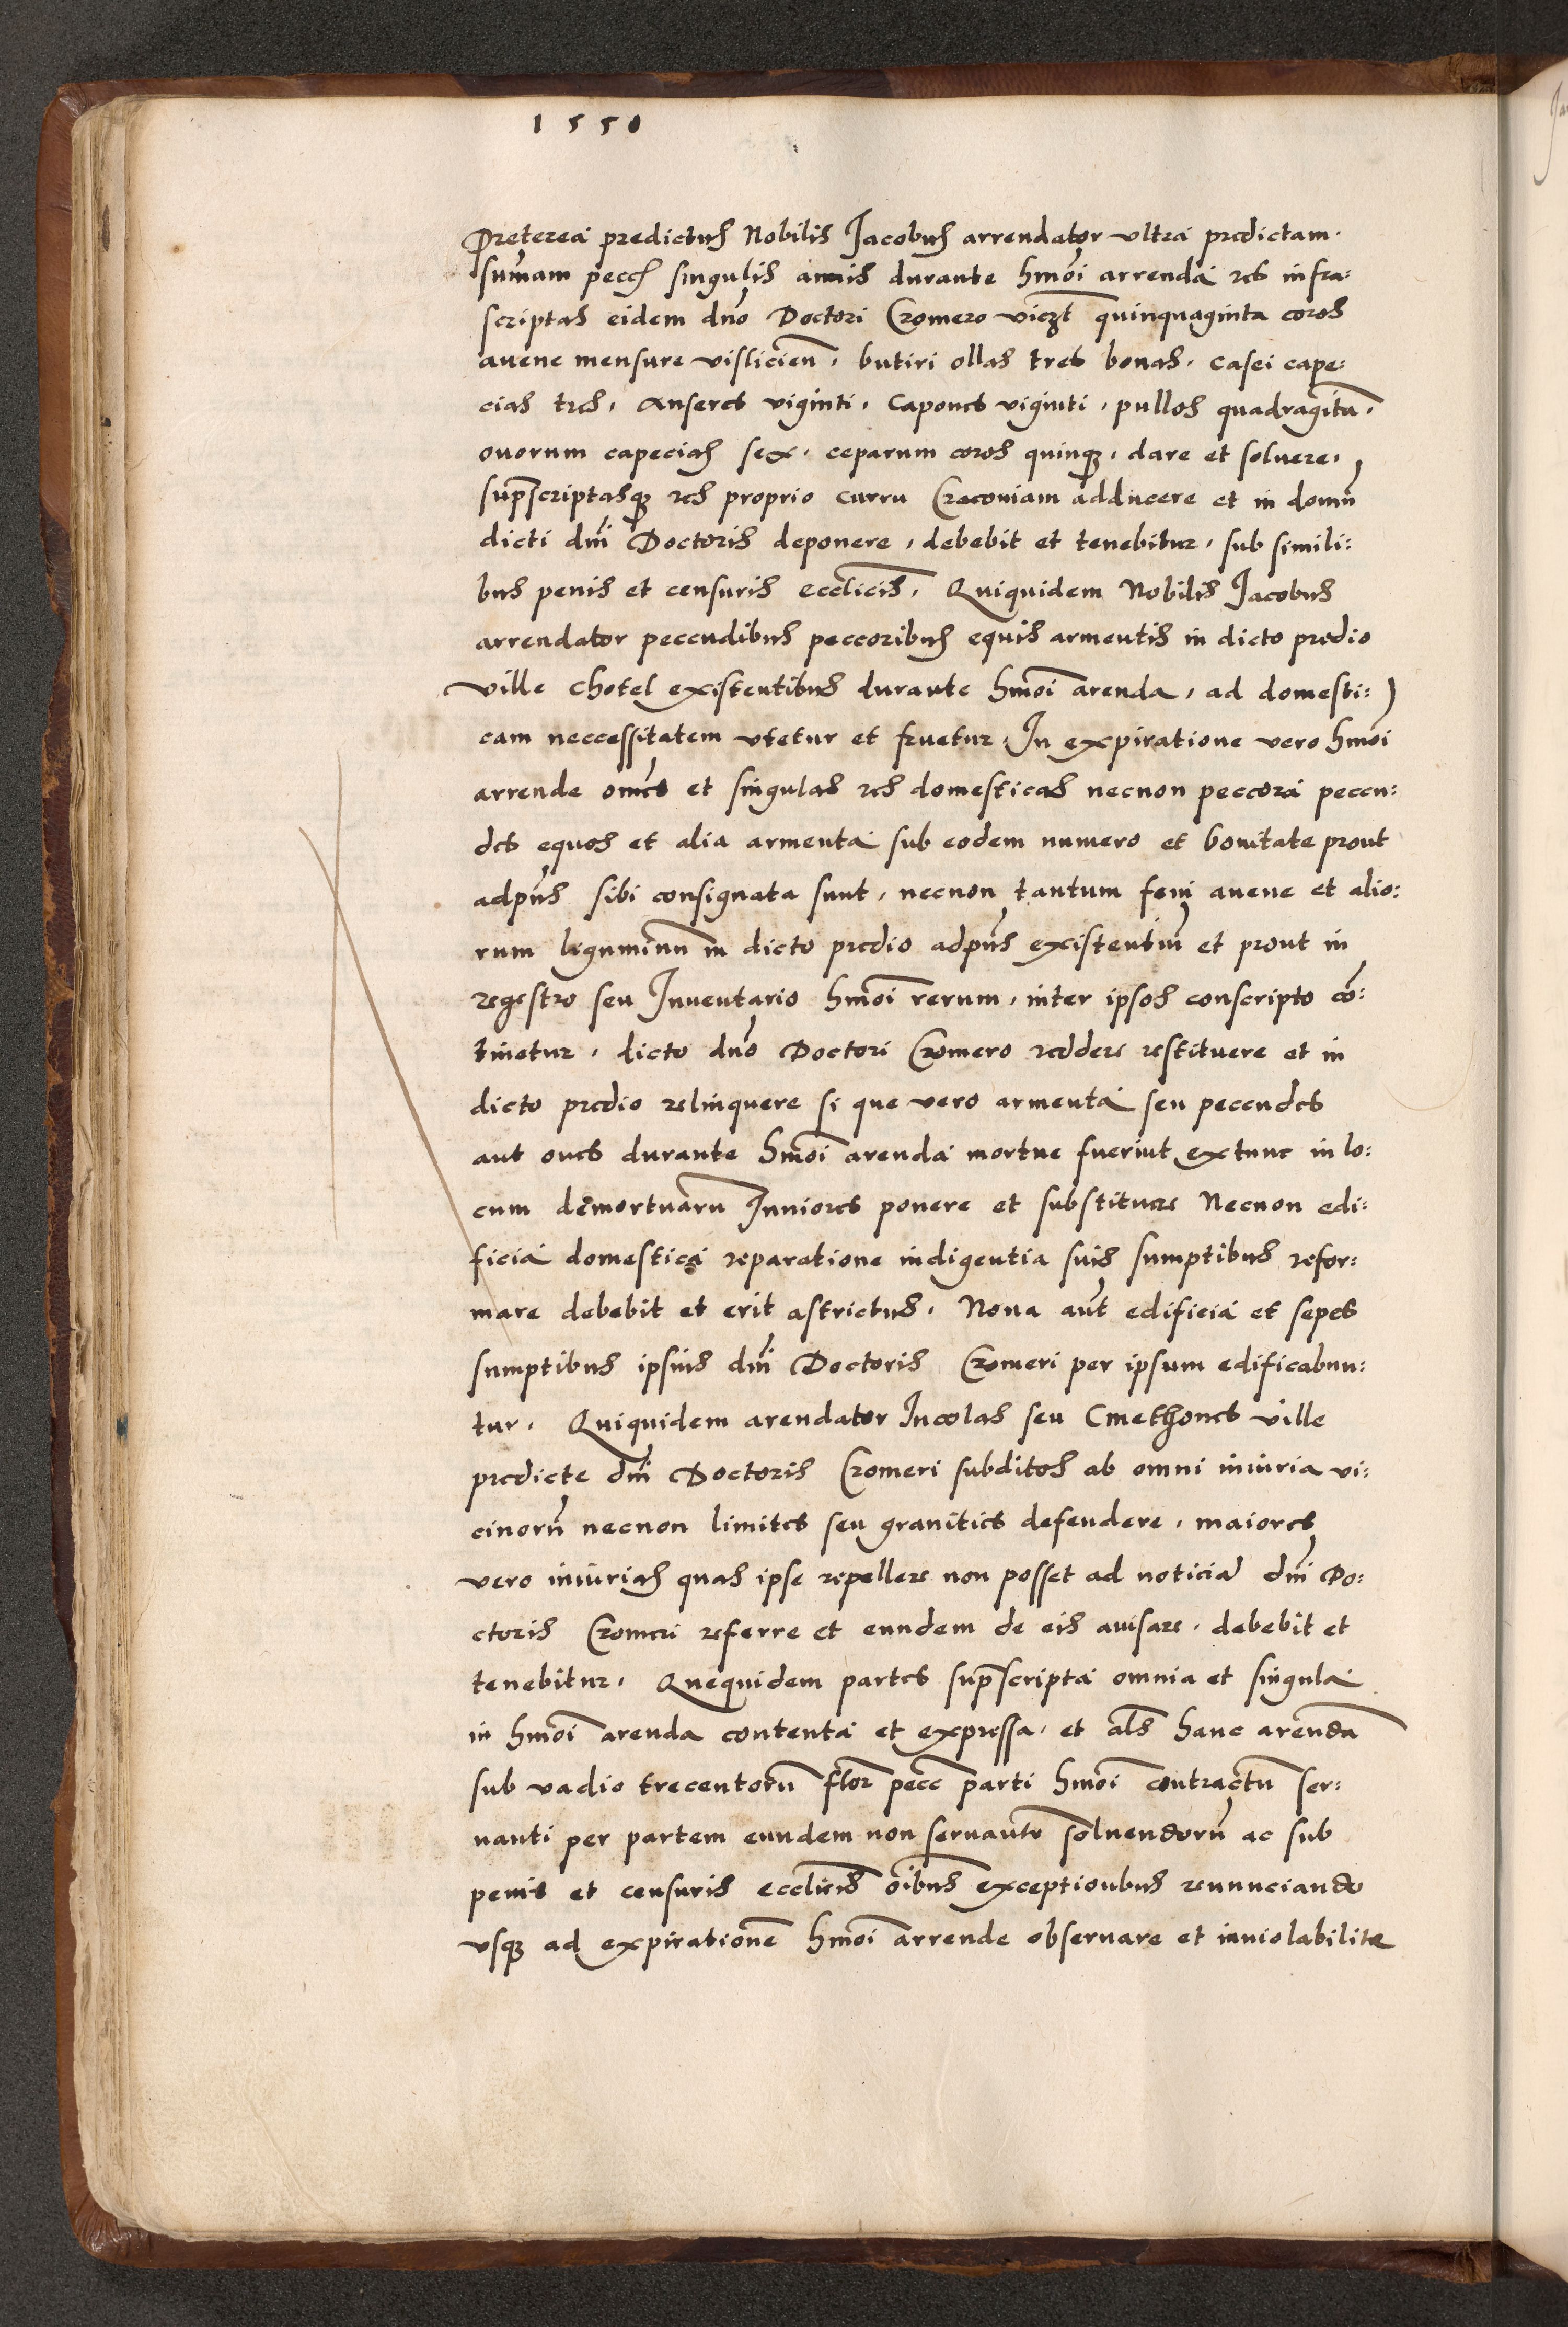 1550
Preterea predictus Nobilis Jacobus arrendator ultra predictam
sum̄am pecc̄ singulis annis durante hmōi arrenda res infra:
scriptas eidem dnō Doctori Cromero viczt̄ quinquaginta coros
avene mensure visliciēn, butiri ollas tres bonas, casei cape:
cias tres, Anseres viginti, Capones viginti, pullos quadragīta,
ovorum capecias sex, ceparum coros quinq₃, dare et solvere,
sup̄scriptasq₃ res proprio curru Cracoviam adducere et in domū
dicti dnī Doctoris deponere, debebit et tenebitur, sub simili:
bus penis et censuris ecclīcis, Quiquidem Nobilis Jacobus
arrendator peccudibus peccoribus equis armentis in dicto predio
ville Chotel existentibus durante hmōi arenda, ad domesti:
cam neccessitatem utetur et fruetur, In expiratione vero hmōi
arrende omēs et singulas res domesticas necnon peccora peccu:
des equos et alia armenta sub eodem numero et bonitate prout
adpn̄s sibi consignata sunt, necnon tantum feni avene et alio:
rum liguminū in dicto predio adpn̄s existentiū et prout in
regestro seu Inventario hmōi rerum, inter ipsos conscripto cō:
tinetur, dicto dnō Doctori Cromero reddere restituere et in
dicto predio relinquere si que vero armenta seu peccudes
aut oves durante hmōi arenda mortue fuerint extunc in lo:
cum demortuarū Juniores ponere et substituere Necnon edi:
ficia domestica reparatione indigentia suis sumptibus refor:
mare debebit et erit astrictus, Nova aut̄ edificia et sepes
sumptibus ipsius dnī Doctoris Cromeri per ipsum edificabun:
tur, Quiquidem arendator Incolas seu Cmethones ville
predicte dnī Doctoris Cromeri subditos ab omni iniuria vi:
cinorū necnon limites seu granities defendere, maiores
vero iniurias quas ipse repellere non posset ad noticiā dnī Do:
ctoris Cromeri referre et eundem de eis avisare, debebit et
tenebitur, Quequidem partes sup̄scripta omnia et singula
in hmōi arenda contenta et expressa, et al̄s hanc arendā
sub vadio trecentorū flor̄ pecc̄ parti hmōi contractū ser:
vanti per partem eundem non servantē solvendorū ac sub
penis et censuris ecclīcis oībus exceptionibus renunciando
usq₃ ad expirationē hmōi arrende observare et inviolabilite